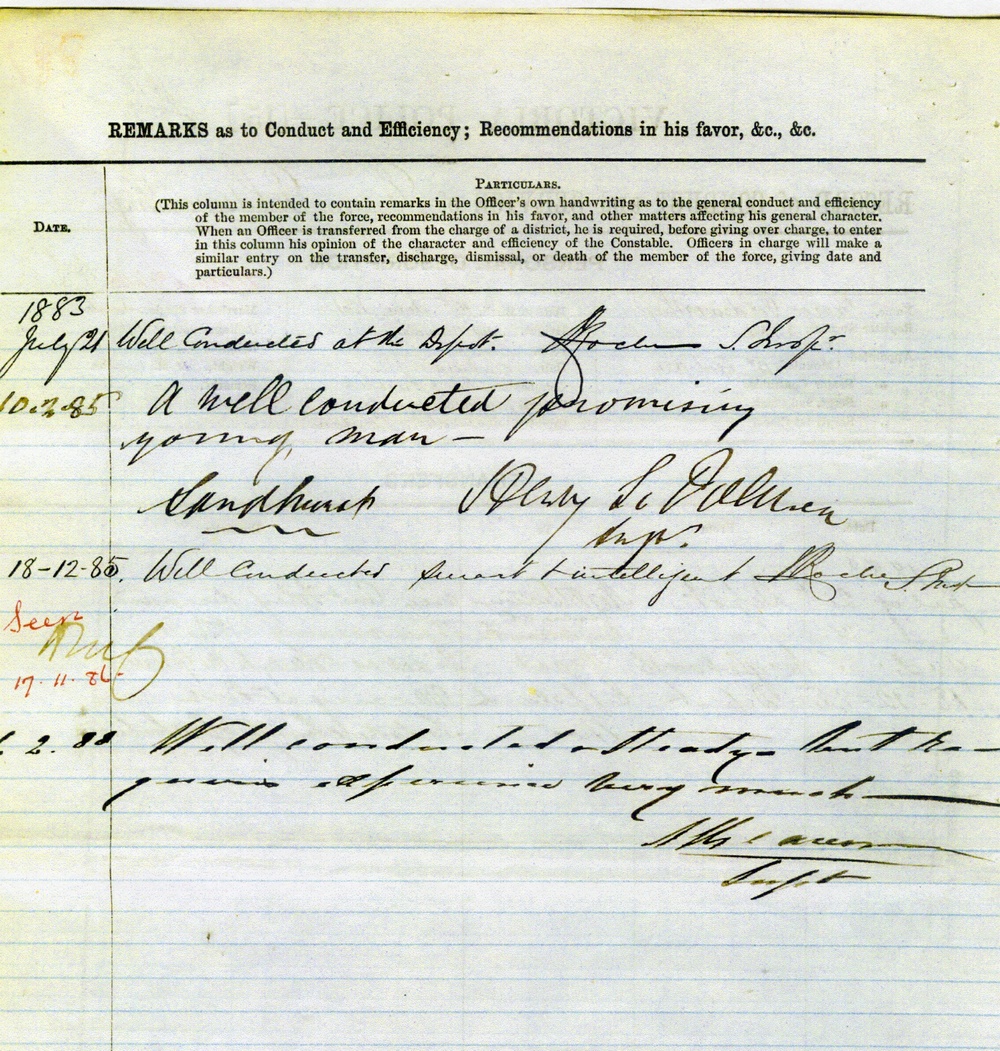 REMARKS as to Conduct and Efficiency; Recommendations in his favor, &c., &c.
DATE.
PARTICULARS.
(This column is intended to contain remarks in the Officer's own handwriting as to the general conduct and efficiency
of the member of the force, recommendations in his favor, and other matters affecting his general character.
When an Officer is transferred from the charge of a district, he is required, before giving over charge, to enter
in this column his opinion of the character and efficiency of the Constable. Officers in charge will make a
similar entry on the transfer, discharge, dismissal, or death of the member of the force, giving date and
particulars.)
1883
July 21 Well Conducted at the Depot.
10.2.85 A well conducted promising
young man –
Sandhurst Henry
Supt.
18-12-85. Well Conducted smart + intelligent
Seen
17.11.86.
2.88 Well conducted & Steady – but re-
quires experience very much —
Supt